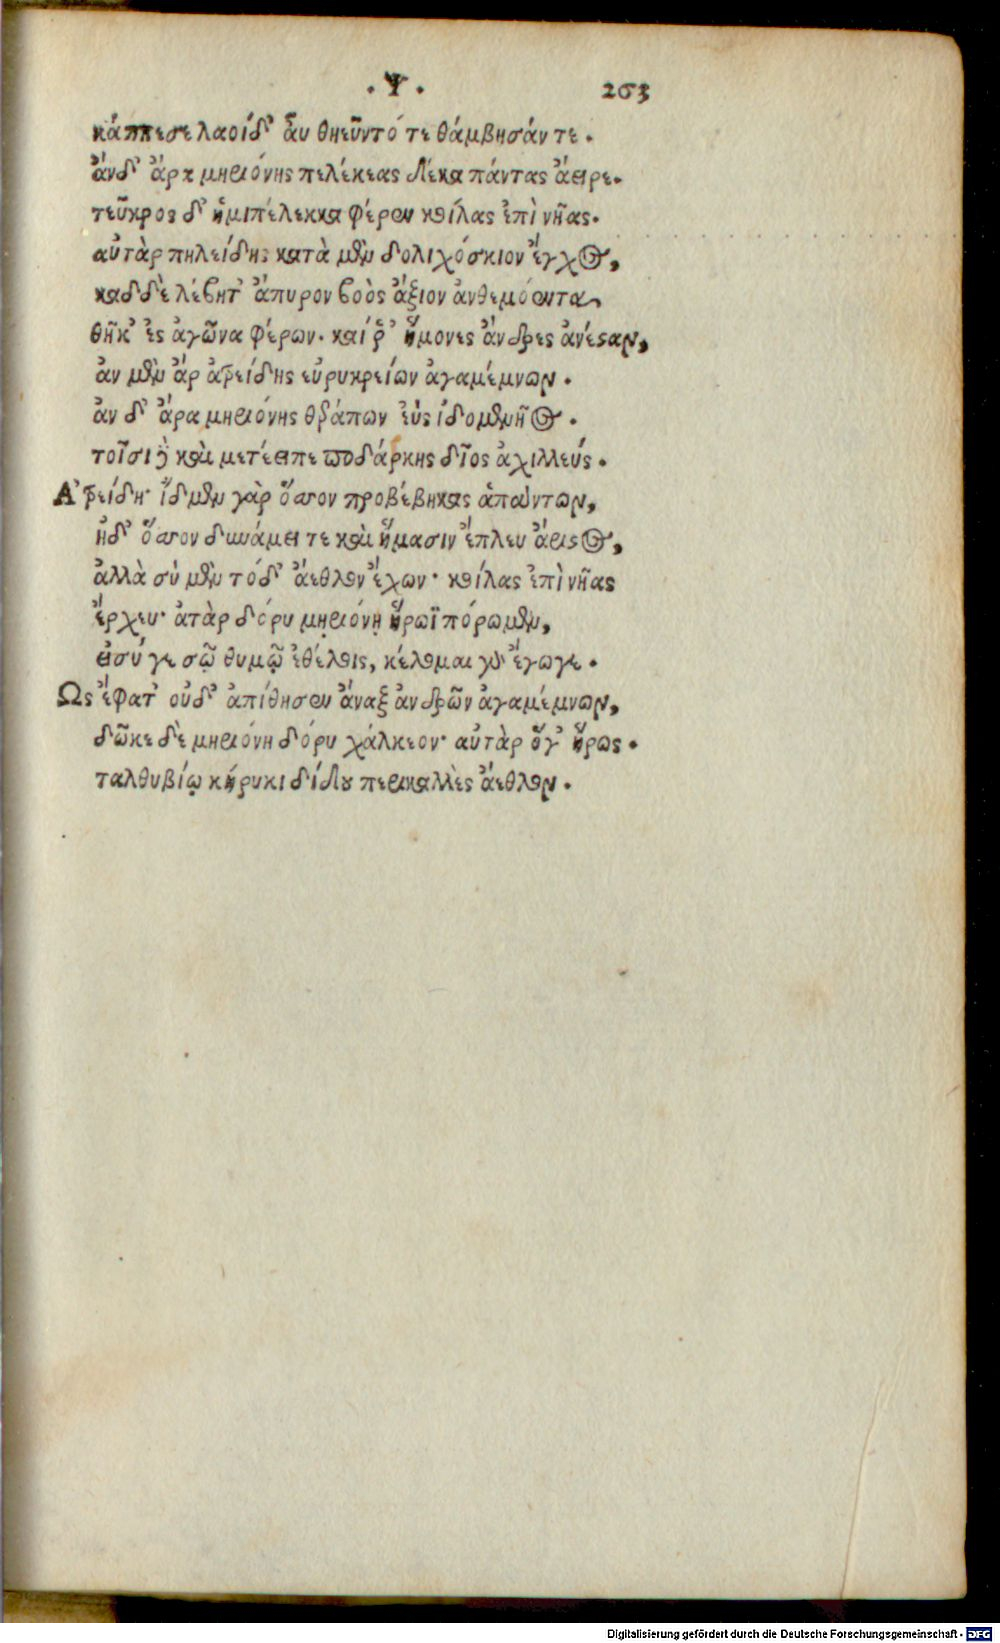 . Ψ . 263
κάππεσε λαοί δ᾽ αὖ θηεῦντό τε θάμβησάν τε.
ἂν δ᾽ ἄρα μηριόνης πελέκεας δέκα πάντας ἄειρε.
τεῦκρος δ᾽ ἡμιπέλεκκα φέρεν κοίλας ἐπὶ νῆας.
αὐτὰρ πηλείδης κατὰ μὲν δολιχόσκιον ἔγχος,
καδδὲ λέβητ᾽ ἄπυρον βοὸς ἄξιον ἀνθεμόεντα
θῆκ᾽ ἐς ἀγῶνα φέρων. καί ῥ᾽ ἥμονες ἄνδρες ἀνέσταν,
ἂν μὲν ἄρ ἀτρείδης εὐρυκρείων ἀγαμέμνων.
ἂν δ᾽ ἄρα μηριόνης θεράπων ἐῢς ἰδομενῆος.
τοῖσι δὲ καὶ μετέειπε ποδάρκης δῖος ἀχιλλεύς.
Ἀτρείδη· ἴδμεν γὰρ ὅσσον προβέβηκας ἁπάντων,
ἠδ᾽ ὅσσον δυνάμει τε καὶ ἥμασιν ἔπλευ ἄριστος,
ἀλλὰ σὺ μὲν τόδ᾽ ἄεθλον ἔχων· κοίλας ἐπὶ νῆας
ἔρχευ· ἀτὰρ δόρυ μηριόνῃ ἥρωϊ πόρωμεν,
εἰ σύ γε σῷ θυμῷ ἐθέλοις, κέλομαι γὰρ ἔγωγε.
Ὣς ἔφατ᾽ οὐδ᾽ ἀπίθησεν ἄναξ ἀνδρῶν ἀγαμέμνων,
δῶκε δὲ μηριόνη δόρυ χάλκεον· αὐτὰρ ὅγ᾽ ἥρως.
ταλθυβίῳ κήρυκι δίδου περικαλλὲς ἄεθλον.
Digitalisierung gefördert durch die Deutsche Forschungsgemeinschaft - DFG